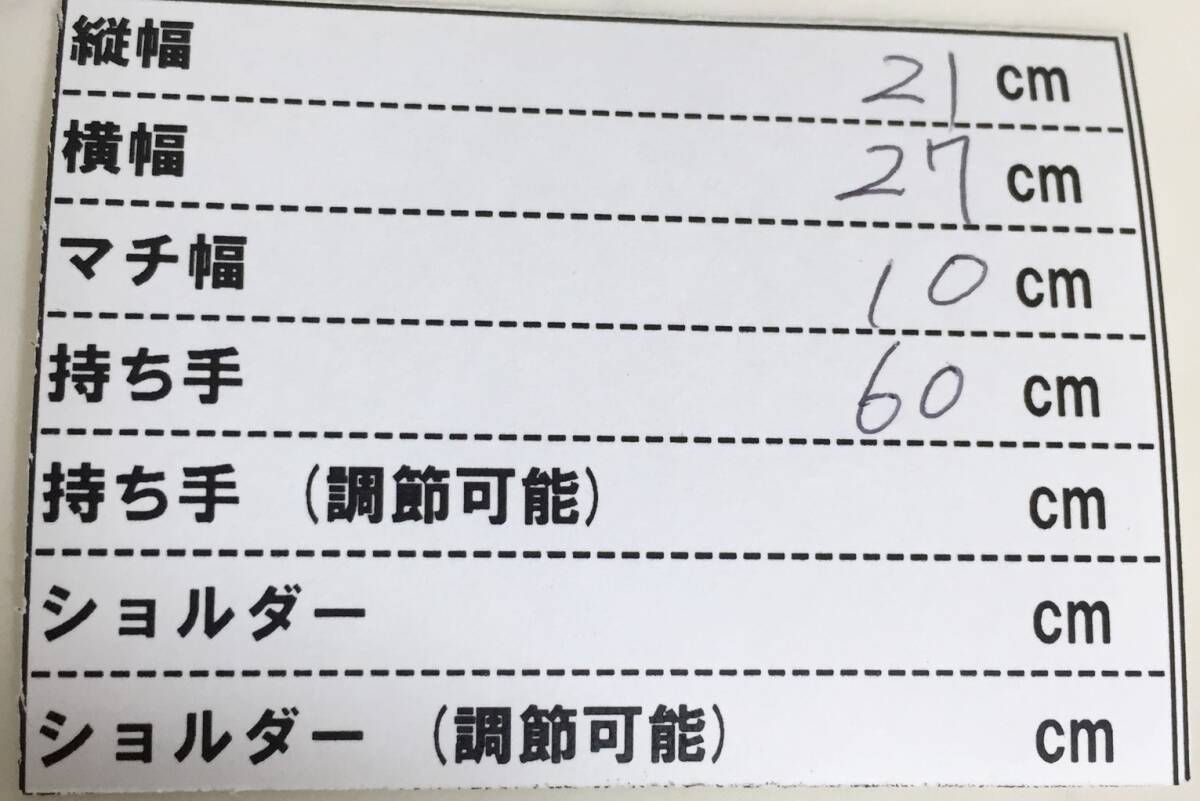 縦幅 21 cm
横幅 27 cm
マチ幅 10 cm
持ち手 60 cm
持ち手 (調節可能) cm
ショルダー cm
ショルダー (調節可能) cm